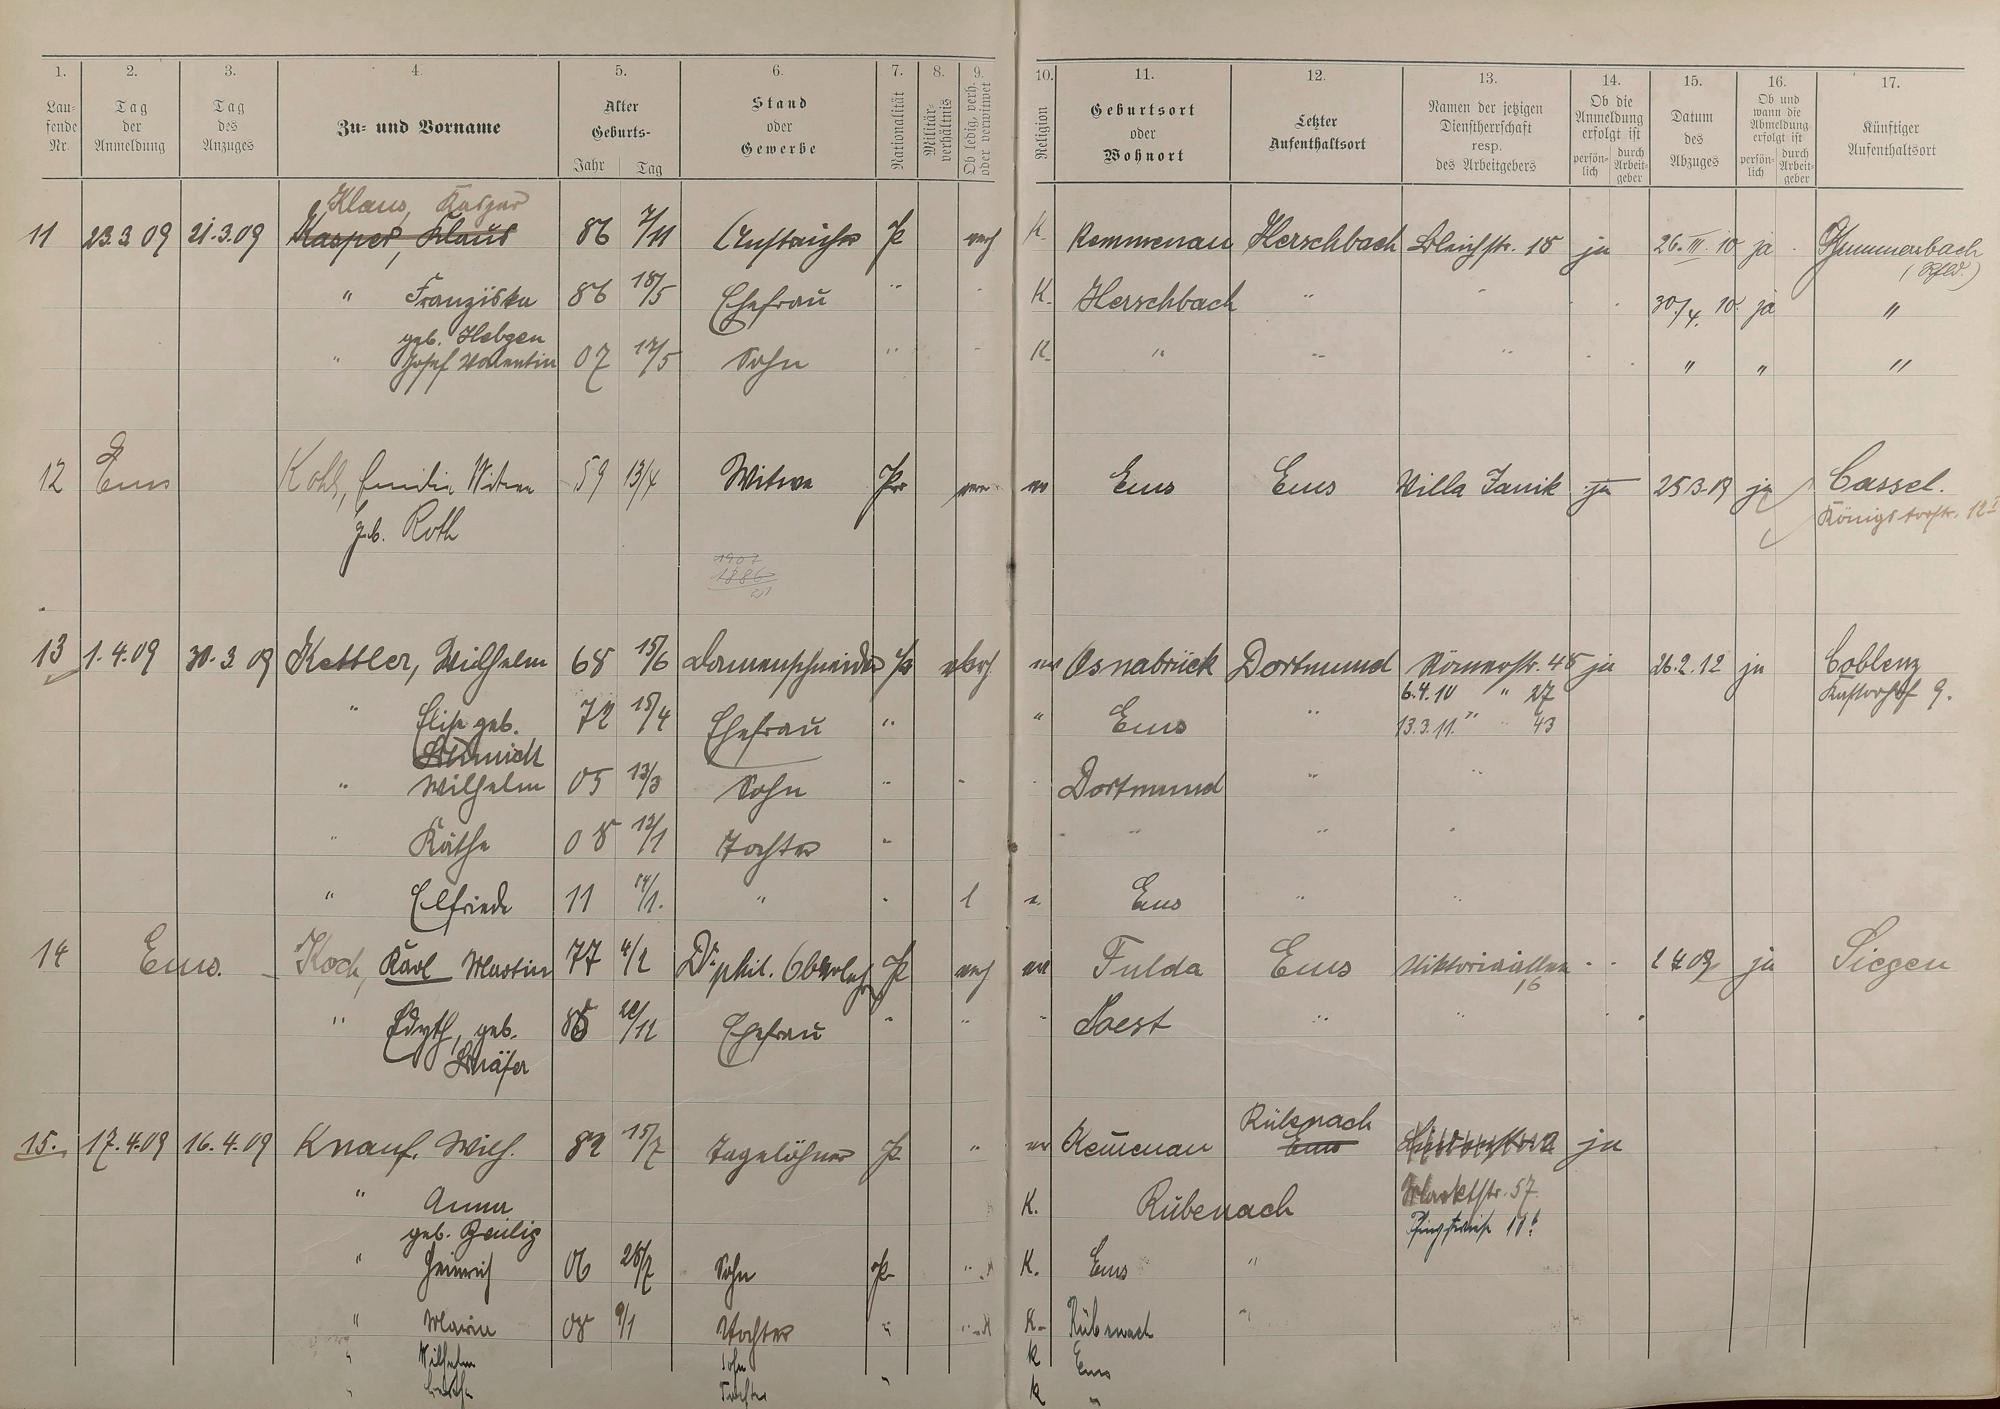 1. 2. 3. 4. 5. 6. 7. 8. 9. 10. 11. 12. 13. 14. 15. 16. 17.
Lau-fende Nr.
Tag der Anmeldung
Tag des Anzuges
Zu- und Vorname
Alter Geburts- Jahr Tag
Stand oder Gewerbe
Nationalität
Militär-verhältnis
Ob ledig, verh. oder verwitwet
Religion
Geburtsort oder Wohnort
Letzter Aufenthaltsort
Namen der jetzigen Dienstherrschaft resp. des Arbeitgebers
Ob die Anmeldung erfolgt ist persön-lich durch Arbeit-geber
Datum des Abzuges
Ob und wann die Abmeldung erfolgt ist persön-lich durch Arbeit-geber
Künftiger Aufenthaltsort
Klaus, Kaspar
11 23.3.09 21.3.09 Kasper, Klaus 86 7/11 Anstreicher P verh K. Kemmenau Herschbach Bleichstr. 18 ja 26.III.10 ja
" Franziska 86 18/5 Ehefrau " K. Herschbach " " 30./4. 10. ja "
geb. Hebgen
" Josef Valentin 07 17/5 Sohn " K. " " " " " "
12 Ems Kohl, Emilie Witwe 59 13/4 Witwe Pr Ems Ems Villa Janik ja 25.3.09 ja Cassel.
geb. Roth Königstorstr. 12 I
1907
1886
21
13 1.4.09 30.3.09 Kettler, Wilhelm 68 15/6 Damenschneider Pr verh. ev Osnabrück Dortmund Römerstr. 45 ja 26.2.12 ja Coblenz
6.4.10 " 27 Kastorhof 9.
" Elise geb. 72 15/4 Ehefrau " " Ems " 13.3.11. " " 43
Schmidt
" Wilhelm 05 13/3 Sohn " " Dortmund " "
" Käthe 08 12/1 Tochter " " " "
" Elfriede 11 14/1. " " l e. Ems " "
14 Ems. Koch, Karl Martin 77 4/2 Dr. phil. Oberlehr P verh ev Fulda Ems Viktoriaallee ja Siegen
16
" Edyth, geb. 85 /12 Ehefrau " " " Soest " "
Schäfer
Rübenach
15. 17.4.09 16.4.09 Knauf. Wilh. 82 15/7 Tagelöhner P. " ev Kemenau Ems ja
" Anna K. Rübenach Marktstr. 57.
geb. Zeilig
" Heinrich 06 28/7 Sohn P. K. Ems "
" Maria 08 9/1 Tochter " K. Rübenach "
" Wilhelm Sohn K Ems
" Tochter " K "